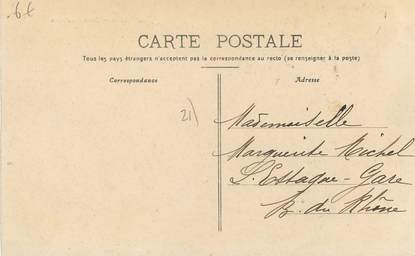 6€
CARTE POSTALE
Tous les pays étrangers n'acceptent pas la correspondance au recto (se renseigner à la poste)
Correspondance
Adresse
21)
Mademoiselle
Marguerite Michel
L'Estaque-Gare
B. du Rhône